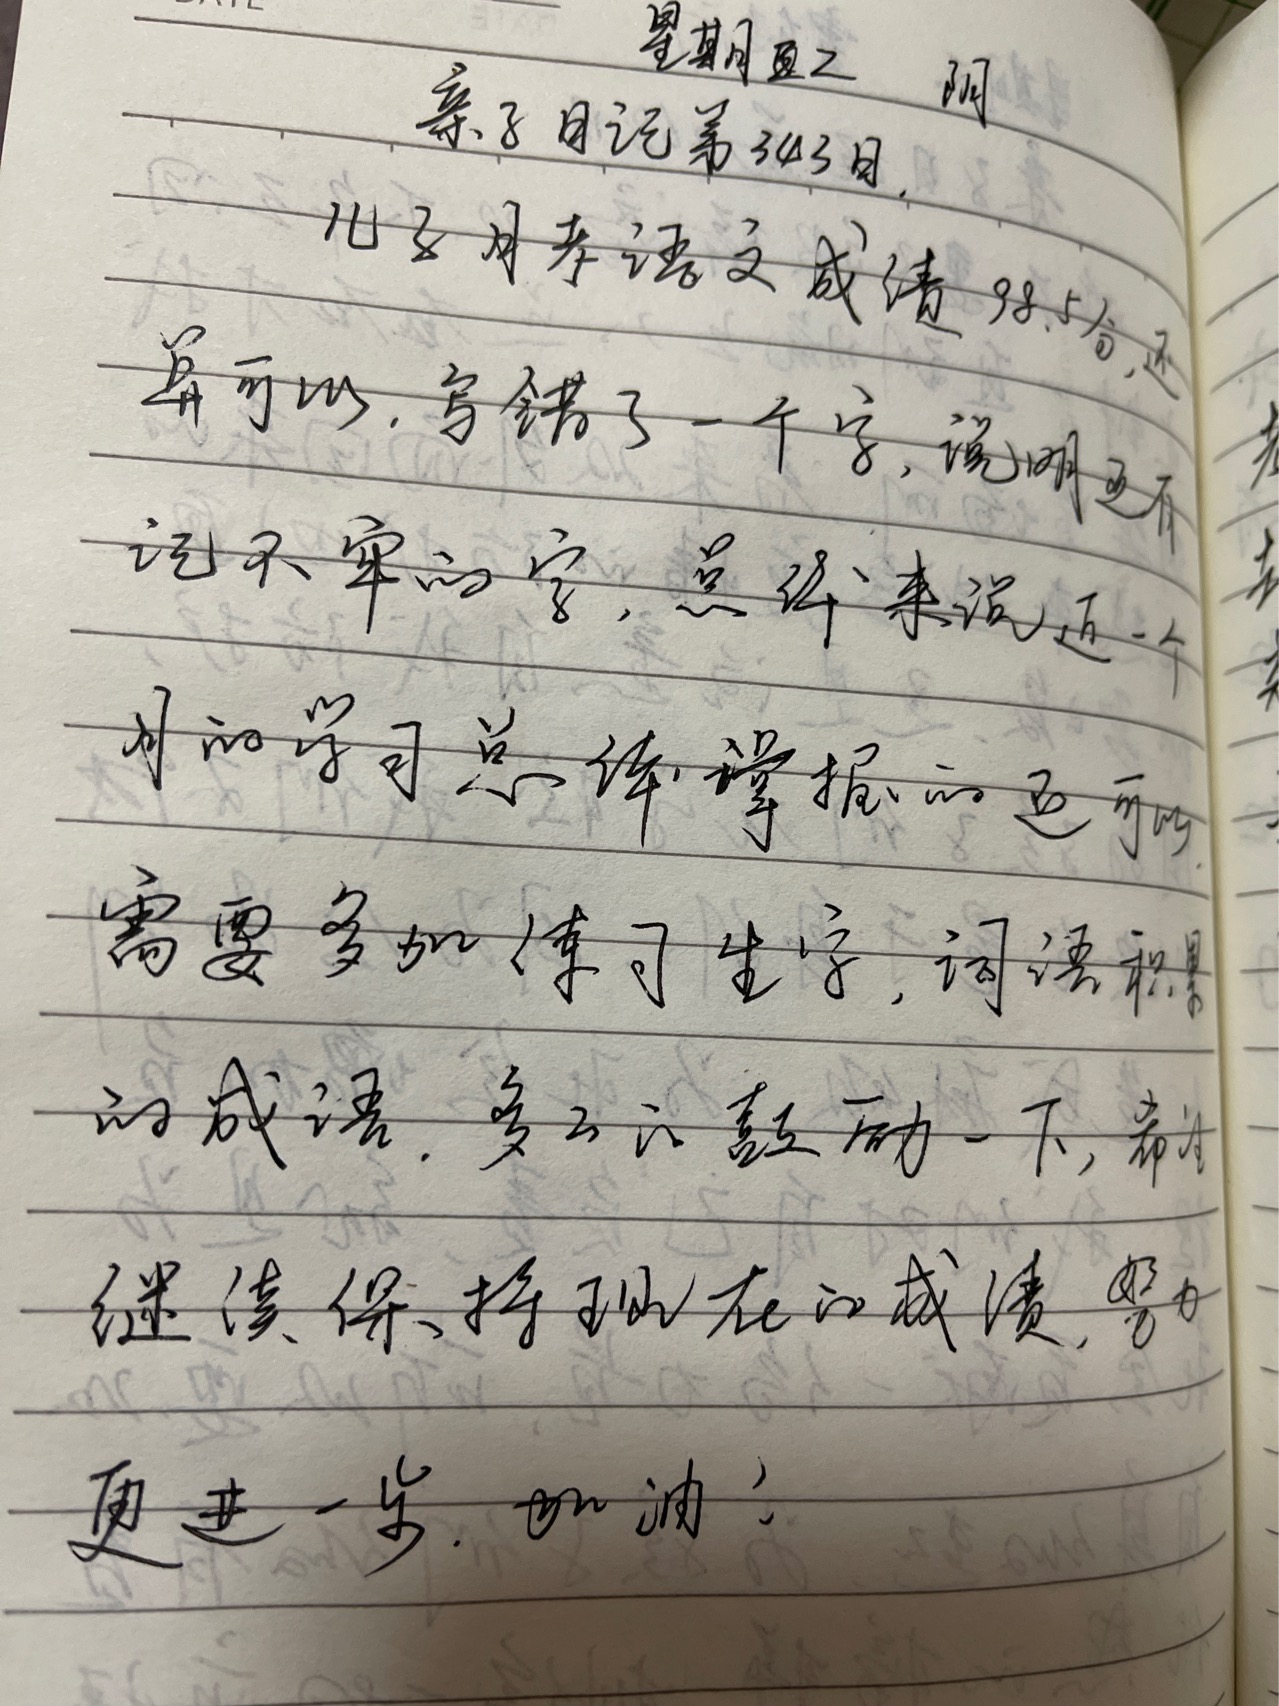 DATE
星期五 阴
亲子日记第343日.
儿子月考语文成绩98.5分,还
算可以.写错了一个字,说明还有
记不牢的字,总体来说近一个
月的学习总体掌握的还可以.
需要多加练习生字,词语积累
的成语.多多的鼓励一下,希望
继续保持现在的成绩,努力
更进一步.加油!